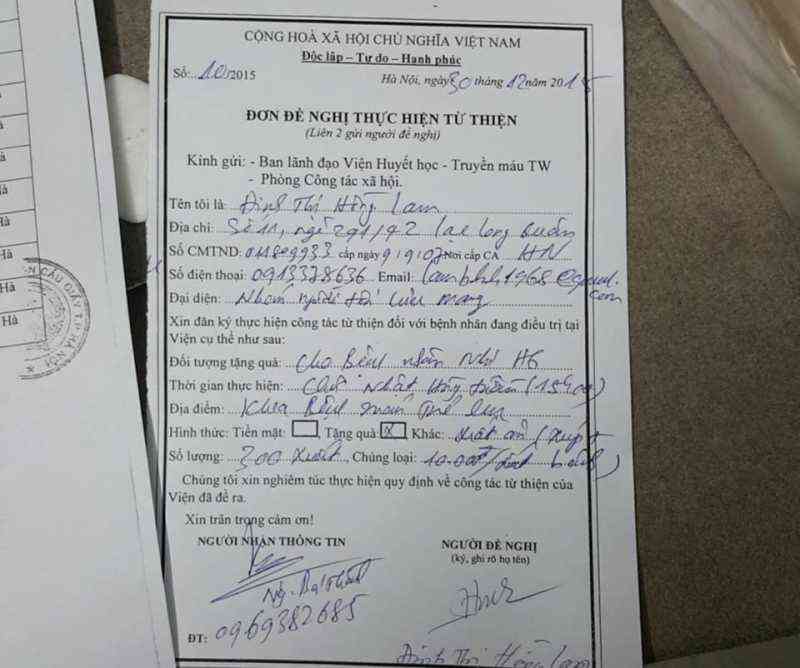 CỘNG HOÀ XÃ HỘI CHỦ NGHĨA VIỆT NAM
Độc lập – Tự do – Hạnh phúc
Số:...10/2015
Hà Nội, ngày 30 tháng 12 năm 2015
ĐƠN ĐỀ NGHỊ THỰC HIỆN TỪ THIỆN
(Liên 2 gửi người đề nghị)
Kính gửi: - Ban lãnh đạo Viện Huyết học - Truyền máu TW
- Phòng Công tác xã hội.
Tên tôi là: Đinh Thị Hồng Lam
Địa chỉ: Số 11, ngõ 291/42 Lạc Long Quân
Số CMTND: cấp ngày 9/9/07 Nơi cấp CA HN
Số điện thoại: 0913378636 Email:
Đại diện: Nhóm người tôi cưu mang
Xin đăn ký thực hiện công tác từ thiện đối với bệnh nhân đang điều trị tại
Viện cụ thể như sau:
Đối tượng tặng quà: Cho Bệnh nhân
Thời gian thực hiện: Chủ Nhật
Địa điểm: Khoa Bệnh máu
Hình thức: Tiền mặt: , Tặng quà X , Khác: suất ăn
Số lượng: 300 xuất, Chủng loại: 10.000đ/
Chúng tôi xin nghiêm túc thực hiện quy định về công tác từ thiện của
Viện đã đề ra.
Xin trân trọng cảm ơn!
NGƯỜI NHẬN THÔNG TIN
NGƯỜI ĐỀ NGHỊ
(ký, ghi rõ họ tên)
ĐT: 0969382685
Đinh Thị Hồng Lam
Hà
Hà
Hà
Hà
Hà
Hà